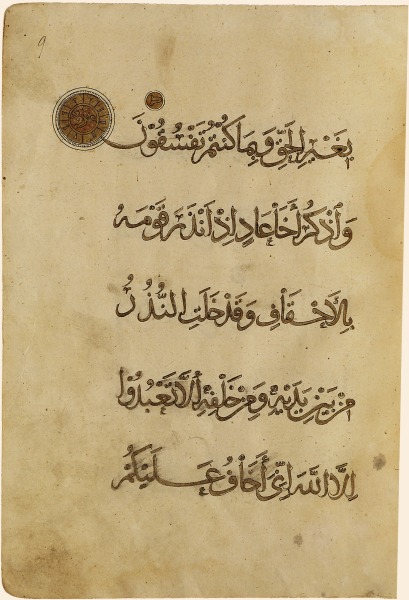 بِغَيْرِ الْحَقِّ وَبِمَا كُنتُمْ تَفْسُقُونَ
وَاذْكُرْ أَخَا عَادٍ إِذْ أَنذَرَ قَوْمَهُ
بِالْأَحْقَافِ وَقَدْ خَلَتِ النُّذُرُ
مِن بَيْنِ يَدَيْهِ وَمِنْ خَلْفِهِ أَلَّا تَعْبُدُوا
إِلَّا اللَّهَ إِنِّي أَخَافُ عَلَيْكُمْ